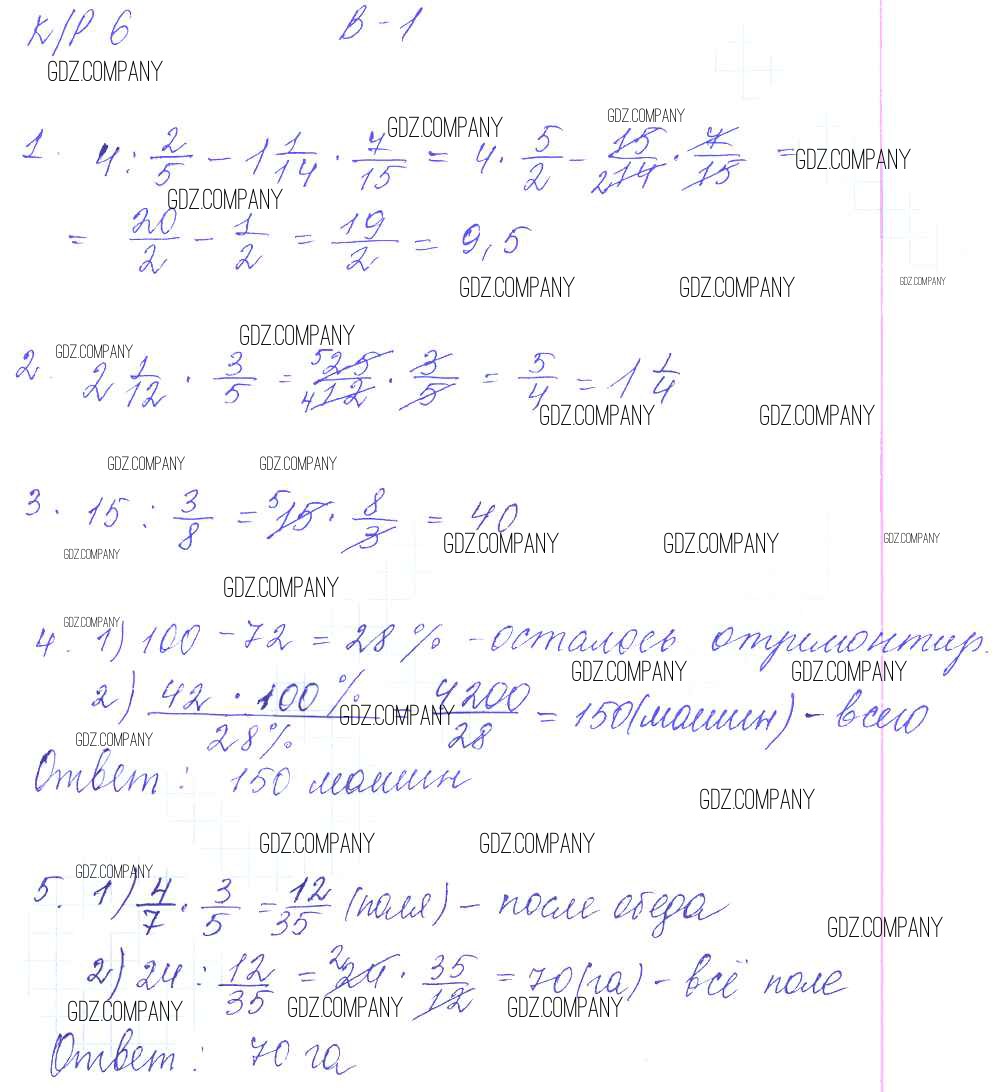 К/Р 6 В-1
GDZ.COMPANY
GDZ.COMPANY GDZ.COMPANY
1. 4 : 2/5 - 1 1/14 · 7/15 = 4 · 5/2 - 15/2 14 · 7/15 = GDZ.COMPANY
GDZ.COMPANY
= 20/2 - 1/2 = 19/2 = 9,5
GDZ.COMPANY GDZ.COMPANY GDZ.COMPANY
GDZ.COMPANY GDZ.COMPANY
2. 2 1/12 · 3/5 = 5 25/4 12 · 3/5 = 5/4 = 1 1/4
GDZ.COMPANY GDZ.COMPANY
GDZ.COMPANY GDZ.COMPANY
3. 15 : 3/8 = 5 15 · 8/3 = 40
GDZ.COMPANY GDZ.COMPANY GDZ.COMPANY GDZ.COMPANY
GDZ.COMPANY
GDZ.COMPANY
4. 1) 100 - 72 = 28 % - осталось отримонтир.
GDZ.COMPANY GDZ.COMPANY
2) 42 · 100 %/28 % = 4200/28 = 150 (машин) - всего
GDZ.COMPANY GDZ.COMPANY
Ответ : 150 машин
GDZ.COMPANY
GDZ.COMPANY GDZ.COMPANY
GDZ.COMPANY
5. 1) 4/7 · 3/5 = 12/35 (поля) - после обеда
GDZ.COMPANY
2) 24 : 12/35 = 2 24 · 35/12 = 70 (га) - всё поле
GDZ.COMPANY GDZ.COMPANY GDZ.COMPANY
Ответ : 70 га